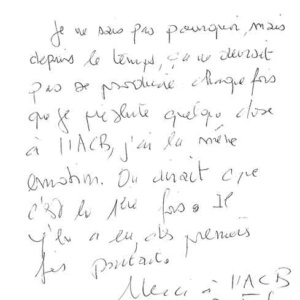 Je ne sais pas pourquoi, mais
depuis le temps, ça ne devrait
pas se produire chaque fois
que je présente quelque chose
à l'IACB, j'ai la même
émotion. On dirait que
c'est la 1ère fois. Il
y'en a eu, des premières
fois pourtant.
Merci à l'IACB